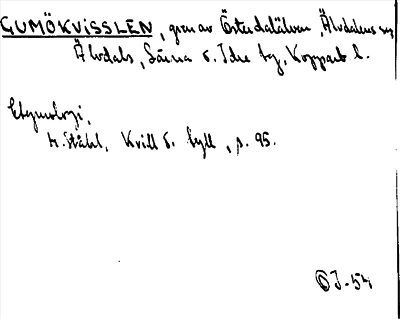 GUMÖKVISSLEN, gren av Österdalälven, Älvdalens sn
Älvdals, Särna o. Idre tg, Kopparb l.
Etymologi,
H. Ståhl, Kvill o. tyll, s. 95.
OJ-54